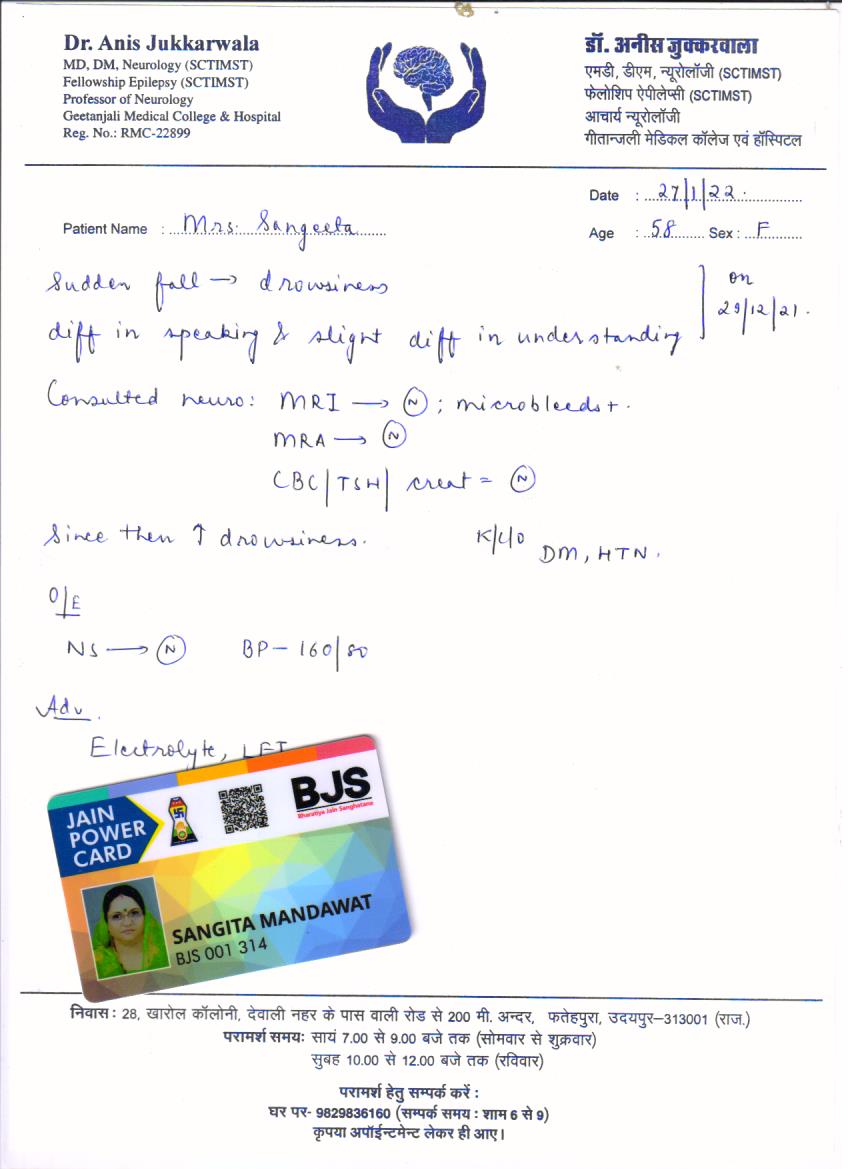 Dr. Anis Jukkarwala
MD, DM, Neurology (SCTIMST)
Fellowship Epilepsy (SCTIMST)
Professor of Neurology
Geetanjali Medical College & Hospital
Reg. No.: RMC-22899
डॉ. अनीस जुक्करवाला
एमडी, डीएम, न्यूरोलॉजी (SCTIMST)
फेलोशिप ऐपीलेप्सी (SCTIMST)
आचार्य न्यूरोलॉजी
गीतान्जली मेडिकल कॉलेज एवं हॉस्पिटल
Date : 27/1/22.
Patient Name : Mrs. Sangeeta
Age : 58 Sex : F
Sudden fall → drowsiness
diff in speaking & slight diff in understanding
on
29/12/21.
Consulted neuro: MRI → (N) ; microbleeds +.
MRA → (N)
CBC | TSH | creat = (N)
Since then ↑ drowsiness.
K/C/O DM, HTN.
O/E
NS → (N) BP - 160/80
Adv.
Electrolyte, LFT
JAIN
POWER
CARD
BJS
Bharatiya Jain Sanghatana
SANGITA MANDAWAT
BJS 001 314
निवास: 28, खारोल कॉलोनी, देवाली नहर के पास वाली रोड से 200 मी. अन्दर, फतेहपुरा, उदयपुर–313001 (राज.)
परामर्श समय: सायं 7.00 से 9.00 बजे तक (सोमवार से शुक्रवार)
सुबह 10.00 से 12.00 बजे तक (रविवार)
परामर्श हेतु सम्पर्क करें :
घर पर- 9829836160 (सम्पर्क समय : शाम 6 से 9)
कृपया अपॉईन्टमेन्ट लेकर ही आए।